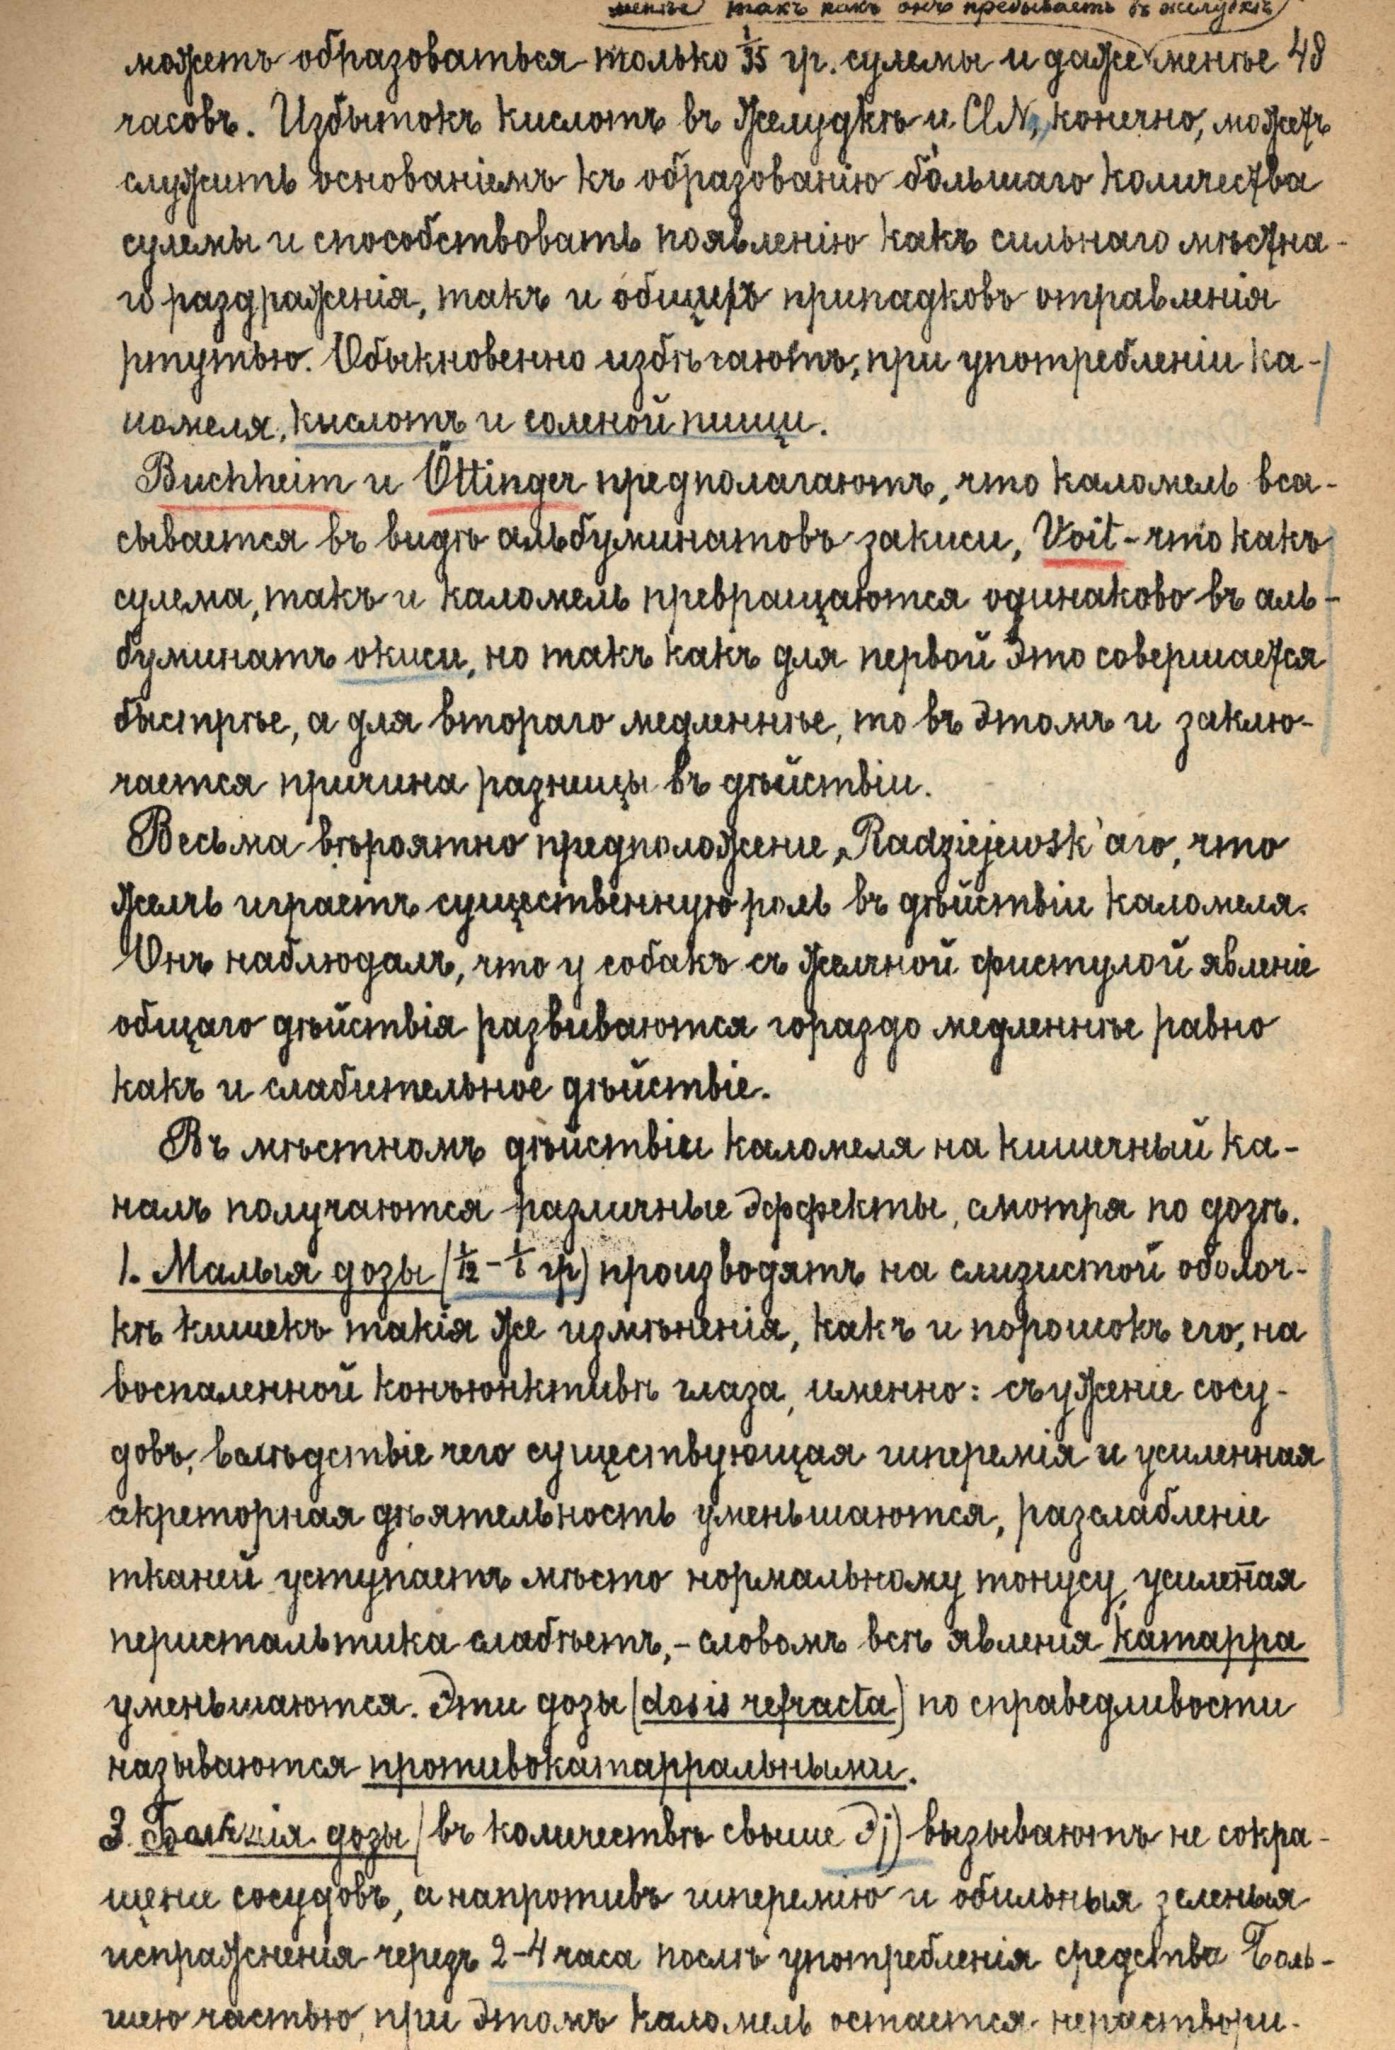 менѣе) такъ какъ онъ пребываетъ въ желудкѣ
можетъ образоваться только 1/35 гр. сулемы и даже менѣе 48
часовъ. Избытокъ кислотъ въ желудкѣ и ClN, конечно, можетъ
служить основаніемъ къ образованію бо́льшаго количества
сулемы и способствовать появленію какъ сильнаго мѣстна-
го раздраженія, такъ и общихъ припадковъ отравленія
ртутью. Обыкновенно избѣгаютъ, при употребленіи ка-
ломеля, кислотъ и соленой пищи.
Buchheim и Öttinger предполагаютъ, что каломель вса-
сывается въ видѣ альбуминатовъ закиси, Voit - что какъ
сулема, такъ и каломель превращаются одинаково въ аль-
буминатъ окиси, но такъ какъ для первой это совершается
быстрѣе, а для втораго медленнѣе, то въ этомъ и заклю-
чается причина разницы въ дѣйствіи.
Весьма вѣроятно предположеніе, Radziejewsk'аго, что
желчь играетъ существенную роль въ дѣйствіи каломеля.
Онъ наблюдалъ, что у собакъ съ желчной фистулой явленіе
общаго дѣйствія развиваются гораздо медленнѣе равно
какъ и слабительное дѣйствіе.
Въ мѣстномъ дѣйствіи каломеля на кишечный ка-
налъ получаются различные эффекты, смотря по дозѣ.
1. Малыя дозы (1/12 - 1/6 гр) производятъ на слизистой оболоч-
кѣ кишекъ такія же измѣненія, какъ и порошокъ его, на
воспаленной конъюнктивѣ глаза, именно: съуженіе сосу-
довъ, вслѣдствіе чего существующая гиперемія и усиленная
секреторная дѣятельность уменьшаются, разслабленіе
тканей уступаетъ мѣсто нормальному тонусу, усиленая
перистальтика слабѣетъ, - словомъ всѣ явленія катарра
уменьшаются. Эти дозы (dosis refracta) по справедливости
называются противокатарральными.
3. дозы (въ количествѣ свыше Эj) вызываютъ не сокра-
щеніе сосудовъ, а напротивъ гиперемію и обильныя зеленыя
испражненія черезъ 2-4 часа послѣ употребленія средства Боль-
шею частью, при этомъ каломель остается нераствори-